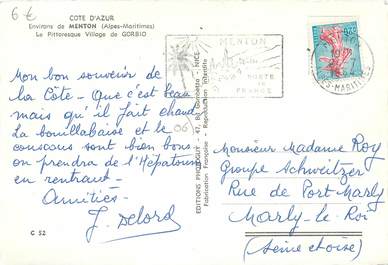 6 €
COTE D'AZUR
Environs de MENTON (Alpes-Maritimes)
Le Pittoresque Village de GORBIO
Mon bon souvenir de
la Côte - Que c'est beau
mais qu'il fait chaud
la bouillabaise et le
couscous sont bien bons -
on prendra de l'Hépatoum
en rentrant -
Amitiés -
J. Delord
C 52
06
EDITIONS PHOTOGUY - 47, Bd Gambetta - NICE
Fabrication Française - Reproduction interdite
MENTON
PORTE
FRANCE
ALPES-MARITIMES
Monsieur Madame Roy
Groupe Schweitzer
Rue de Port-Marly
Marly-le-Roi
(Seine et oise)